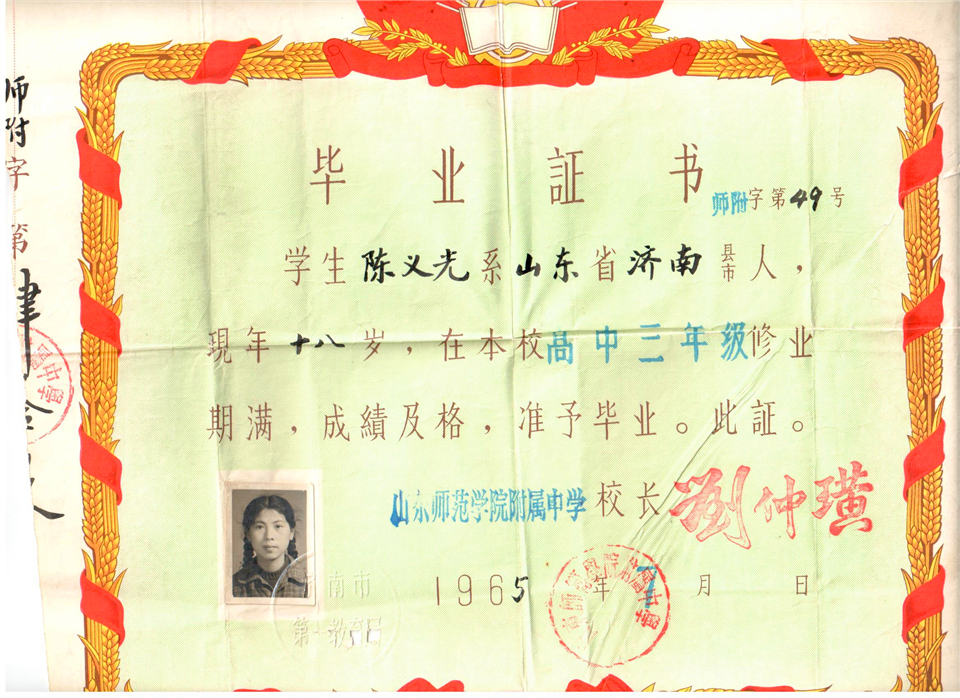 毕业証书
师附字第49号
学生陈义光系山东省济南县市人，
現年十八岁，在本校高中三年级修业
期满，成績及格，准予毕业。此証。
山东师范学院附属中学校长劉仲璜
1965年7月日
济南市
第一教育局
师附字第肆